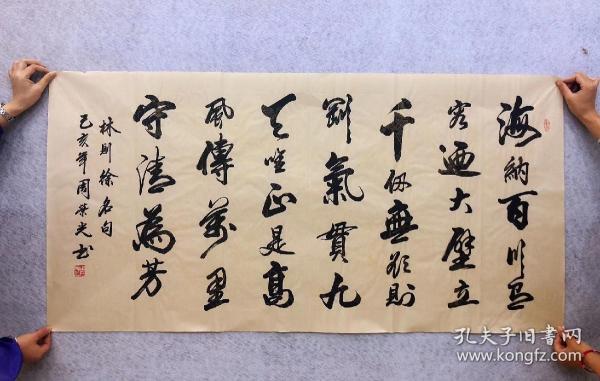 海納百川有
容迺大壁立
千仞無欲則
剛氣貫九
天唯正是高
風傳萬里
守清為芳
林則徐名句
己亥年周光书
孔夫子旧书网
www.kongfz.com